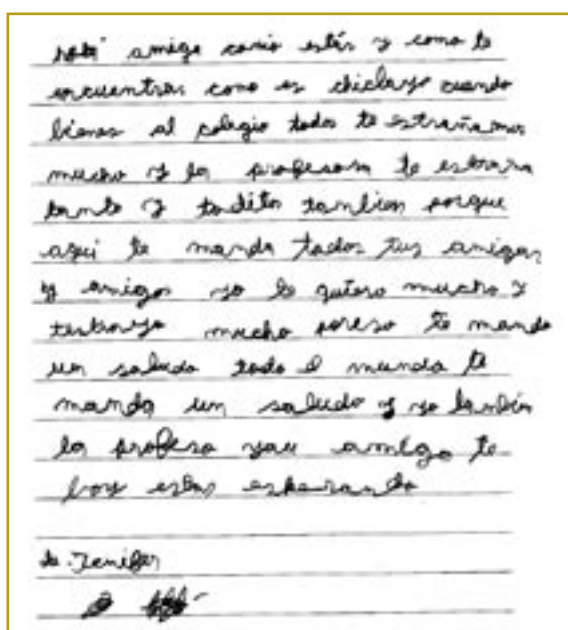 hola amigo como estás y como te
encuentras como es chiclayo cuando
bienes al colegio todos te estrañamos
mucho y la profesora te estraña
tanto y toditos tambien porque
aqui te manda todos tus amigas
y amigos yo te quiero mucho y
mucho poreso te mando
un saludo todo el mundo te
manda un saludo y yo también
la profesa amigo te
boy estar esperando
de Jenifer